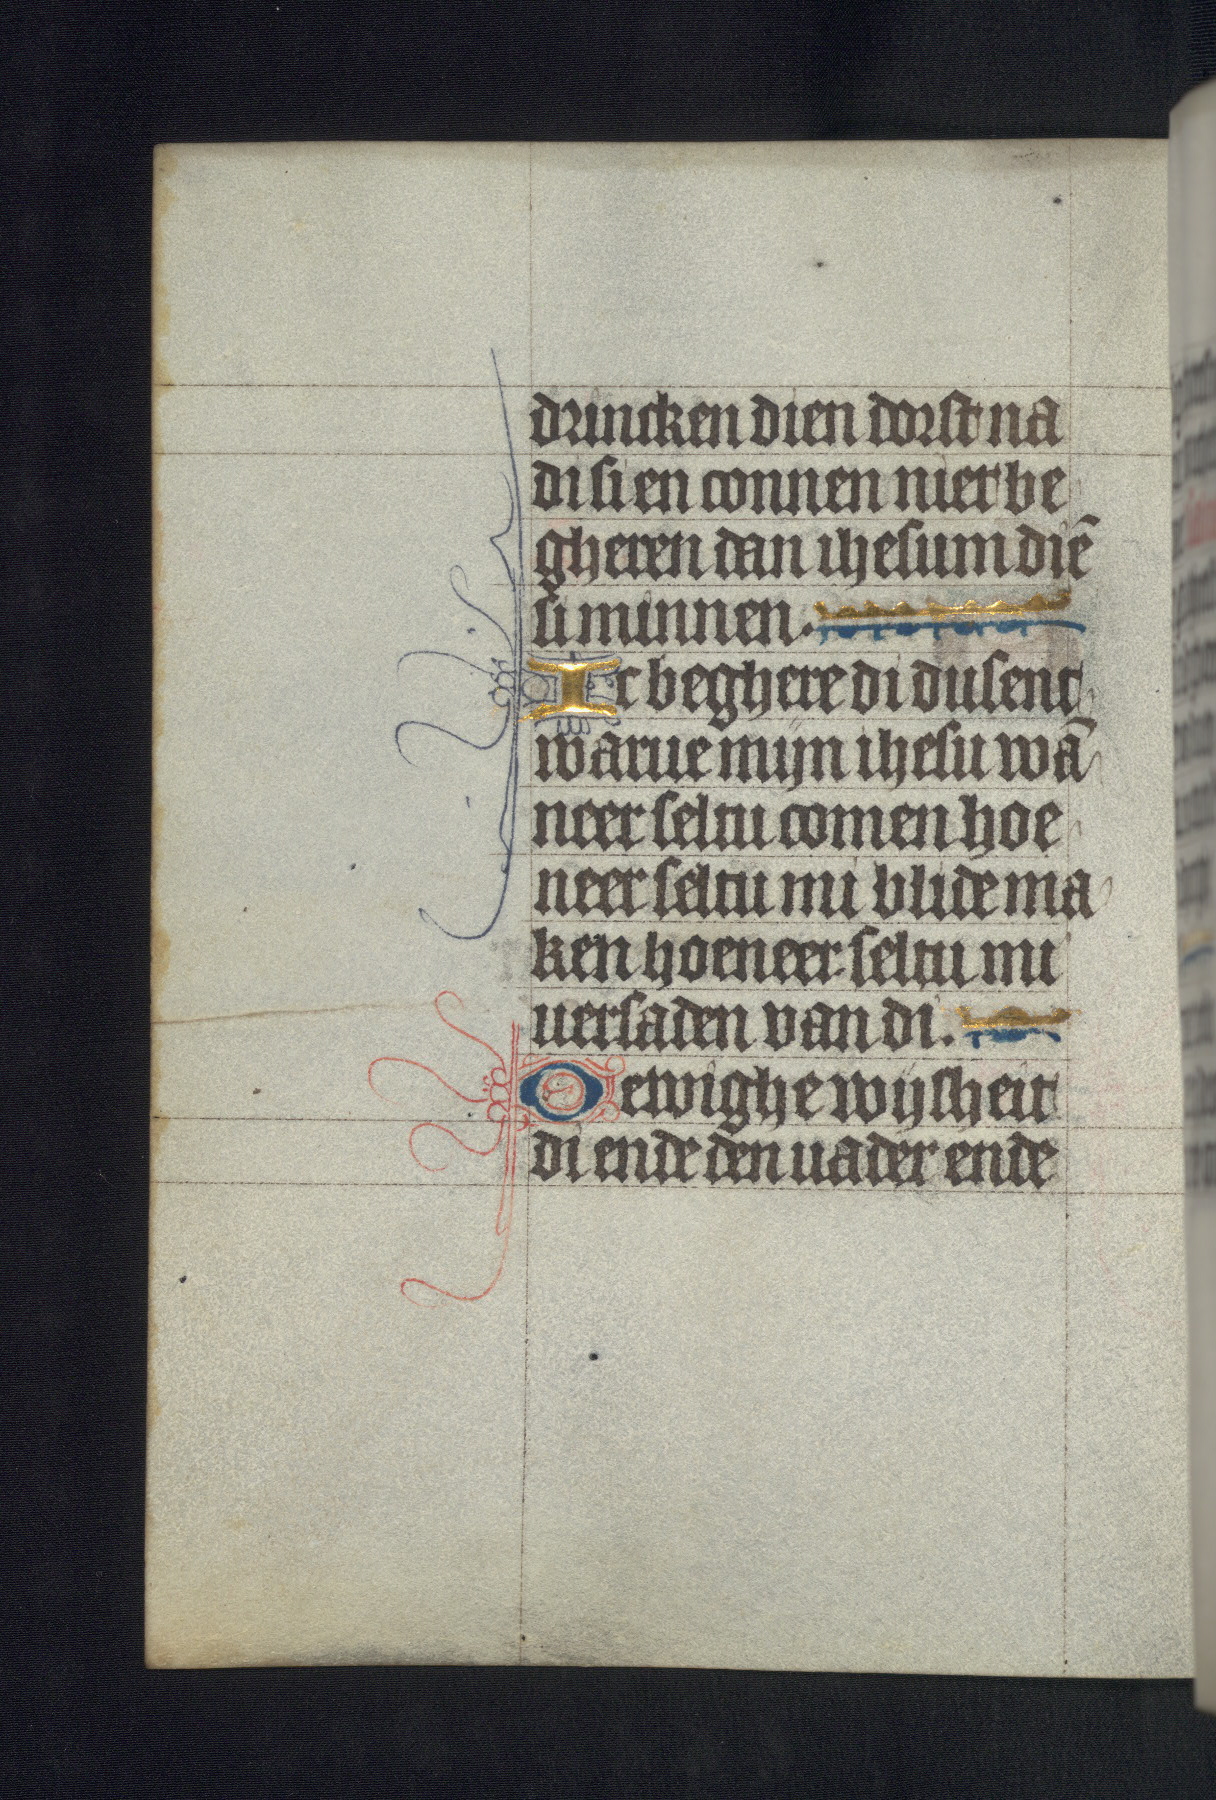 drincken dien dorst na
di si en connen niet be
gheren dan ihesum diē
si minnen.
Ic beghere di dusent
warue mijn ihesu wā
neer seltu comen hoe
neer seltu mi blide ma
ken hoeneer seltu mi
uersaden van di.
O ewighe wijsheit
di ende den uader ende